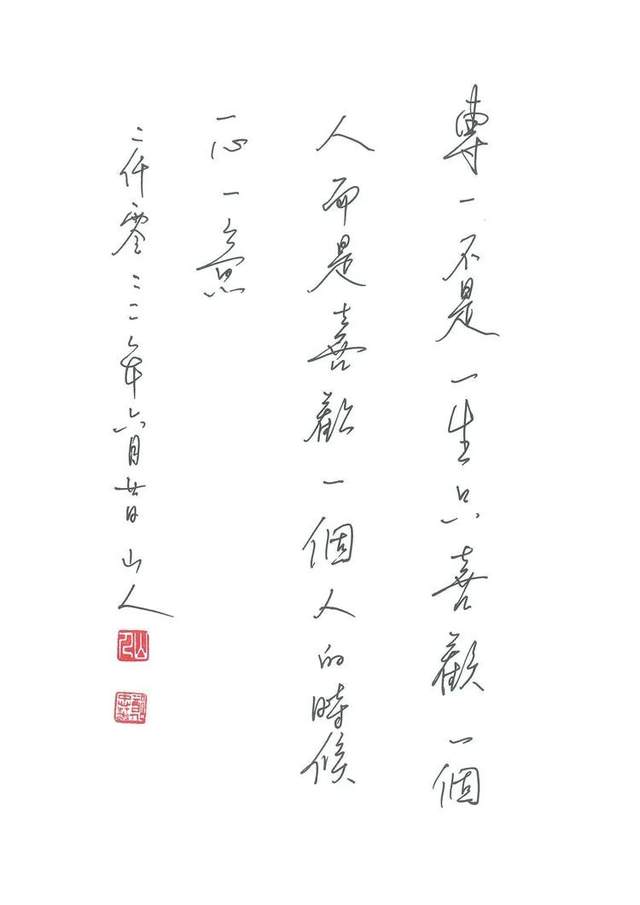 專一不是一生只喜歡一個
人而是喜歡一個人的時候
一心一意
二仟零二二年六月廿日山人
山人